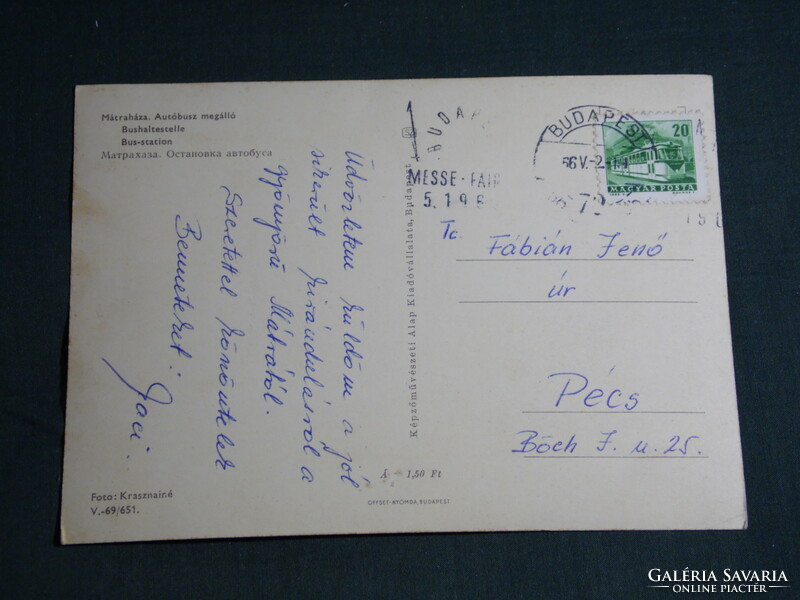 Mátraháza. Autóbusz megálló
Bushaltestelle
Bus-station
Матрахаза. Остановка автобуса
Üdvözletem küldöm a jól
sikerült kirándulásról a
gyönyörű Mátrából.
Szeretettel
Benneteket:
Jaci.
Foto: Krasznainé
V.-69/651.
Képzőművészeti Alap Kiadóvállalata, Budapest
Á 1,50 Ft
OFFSET-NYOMDA BUDAPEST
MESSE - FAIR
BUDAPEST
20
MAGYAR POSTA
Tc.
Fábián Jenő
úr
Pécs
Bőch J. u. 25.
GALÉRIA SAVARIA
ONLINE PIACTÉR